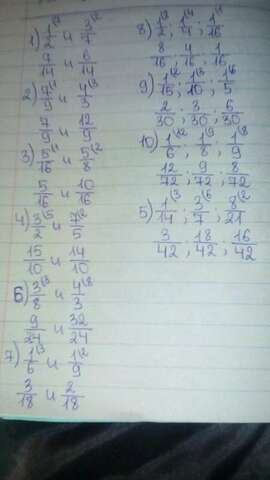 1) 1/2 ⁽⁷ и 3/7 ⁽²
7/14 и 6/14
2) 7/9 ⁽¹ и 4/3 ⁽³
7/9 и 12/9
3) 5/16 ⁽¹ и 5/8 ⁽²
5/16 и 10/16
4) 3/2 ⁽⁵ и 7/5 ⁽²
15/10 и 14/10
6) 3/8 ⁽³ и 4/3 ⁽⁸
9/24 и 32/24
7) 1/6 ⁽³ и 1/9 ⁽²
3/18 и 2/18
8) 1/2 ⁽⁸; 1/4 ⁽⁴; 1/16 ⁽¹
8/16; 4/16; 1/16
9) 1/15 ⁽²; 1/10 ⁽³; 1/5 ⁽⁶
2/30; 3/30; 6/30
10) 1/6 ⁽¹²; 1/8 ⁽⁹; 1/9 ⁽⁸
12/72; 9/72; 8/72
5) 1/14 ⁽³; 3/7 ⁽⁶; 8/21 ⁽²
3/42; 18/42; 16/42